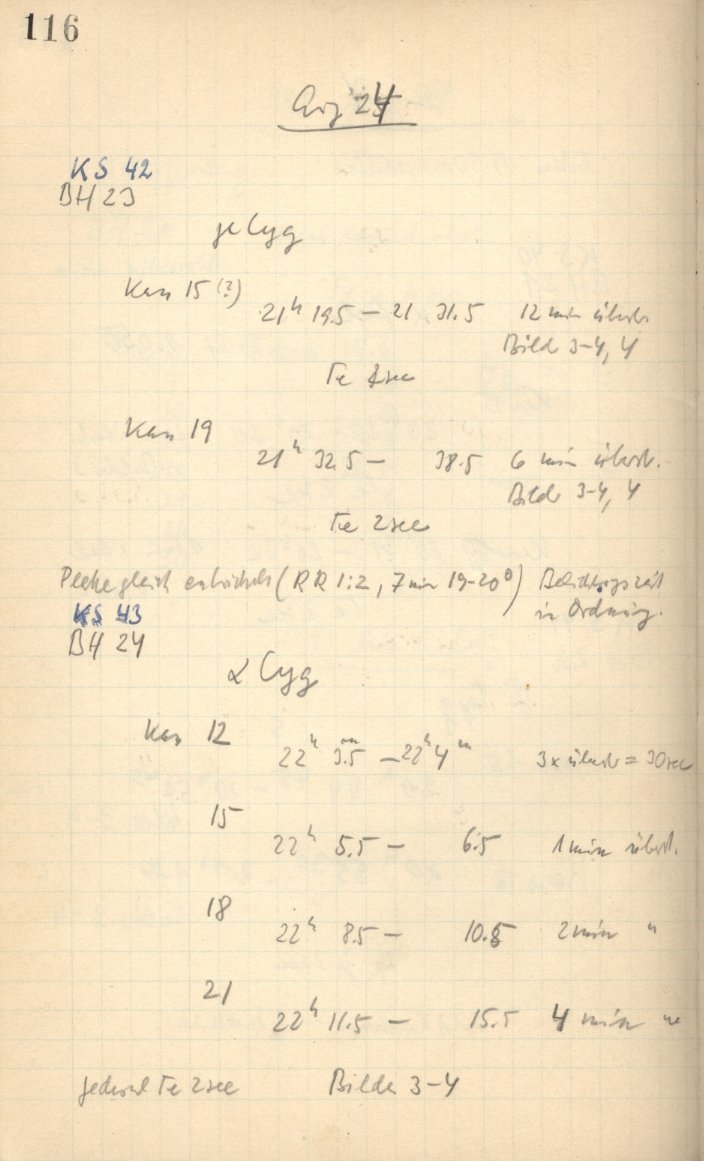 116
Aug 24
KS 42
BH 23
γ Cyg
Kass 15 (?)
21h 19.5 — 21 31.5 12 min überb.
Bild 3-4, 4
Te 2sec
Kass 19
21h 32.5 — 38.5 6 min überb.
Bild 3-4, 4
Te 2sec
gleich entwickelt (RR 1:2, 7 min 19-20°) Belichtungszeit
in Ordnung.
KS 43
BH 24
α Cyg
Kass 12
22h 3.5m — 22h 4m 3x überb = 30sec
15
22h 5.5 — 6.5 1 min überb.
18
22h 8.5 — 10.5 2 min "
21
22h 11.5 — 15.5 4 min "
jedesmal Te 2sec Bilder 3-4